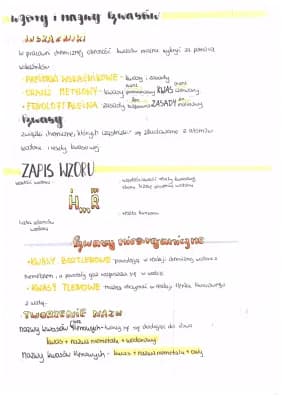 wzory i nazwy kwasów
WSKAŹNIKI
W pracowni chemicznej obecność kwasów można wykryć za pomocą
wskaźników
• PAPIERKI WSKAŹNIKOWE - kwasy i zasady
• ORANŻ METYLOWY - kwasy KWAS czerwony
• FENOLOFTALEINA - zasady ZASADY malinowy
Kwasy
związki chemiczne, których cząsteczki są zbudowane z atomów
wodoru i reszty kwasowej
ZAPIS WZORU
H R
liczba atomów
wodoru
reszta kwasowa
Kwasy nieorganiczne
• KWASY BEZTLENOWE powstają w reakcji chemicznej wodoru z
niemetalem, a powstały gaz rozpuszcza się w wodzie.
• KWASY TLENOWE można otrzymać w reakcji tlenku kwasowego
z wodą.
TWORZENIE NAZW
nazwy kwasów tworzy się dodając do słowa
kwas + nazwa niemetalu + wodorowy
nazwy kwasów tlenowych - kwas + nazwa niemetalu + owy